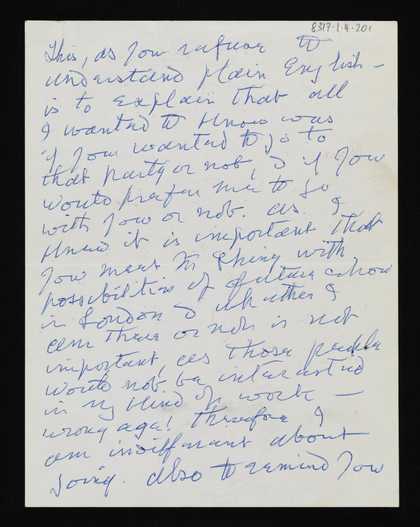 8317.1.4.201
This, as you refuse to
understand plain English –
is to explain that all
I wanted to know was
if you wanted to go to
that party or not, & if you
would prefer me to go
with you or not. as I
know it is important that
you meet Mr with
possibilities of future shows
in London & whether I
am there or not is not
important, as those people
would not be interested
in my kind of work –
wrong age! therefore I
am indifferent about
going. also to remind you